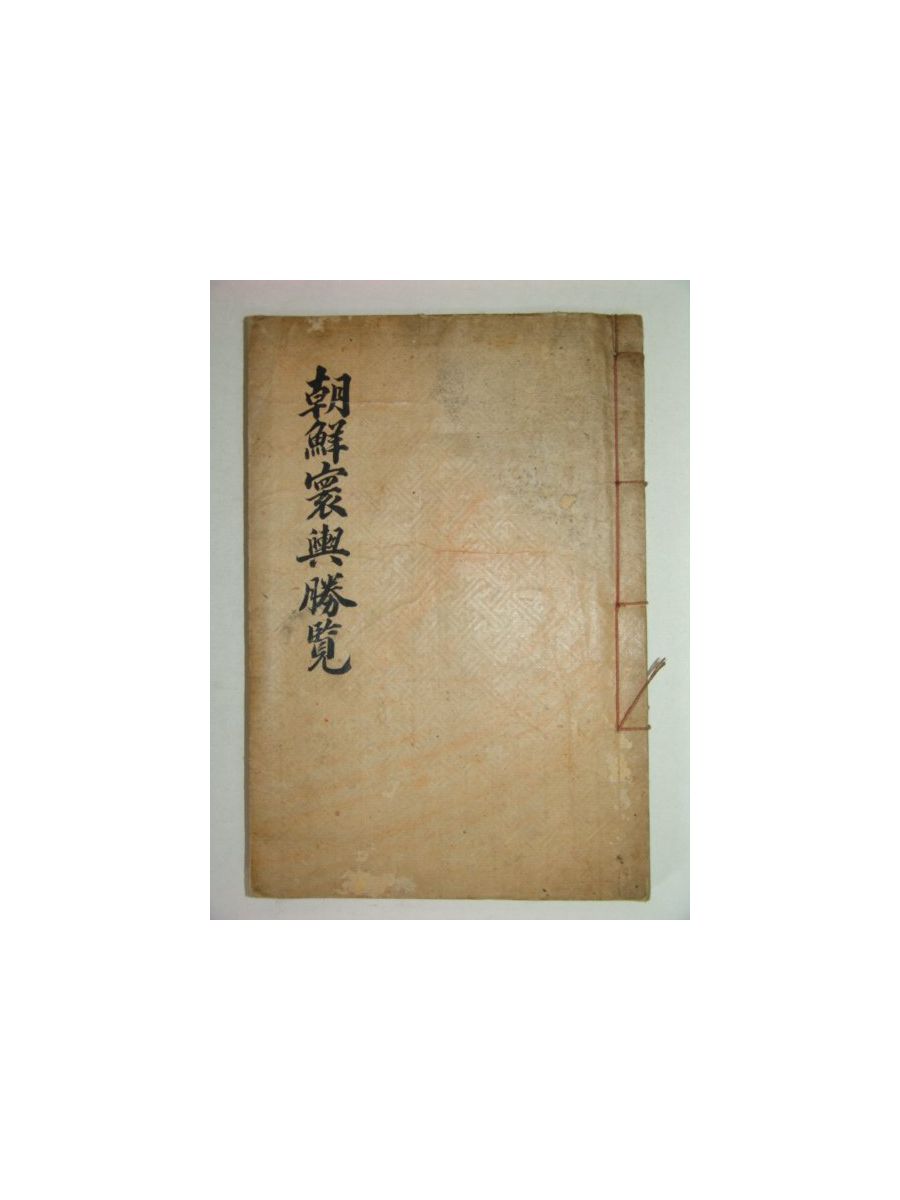 朝鮮寰輿勝覧